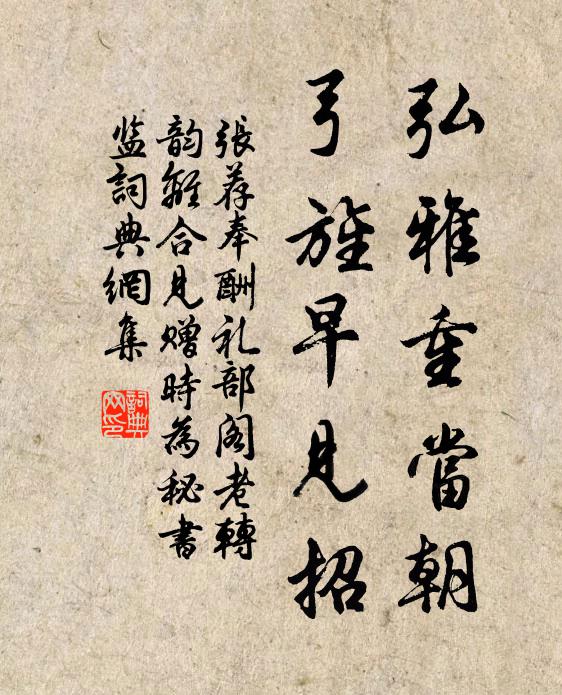 弘雅重當朝
弓旌早見招
張荐奉酬礼部阁老轉
韵離合見赠時為秘書
监詞典網集
詞典網印